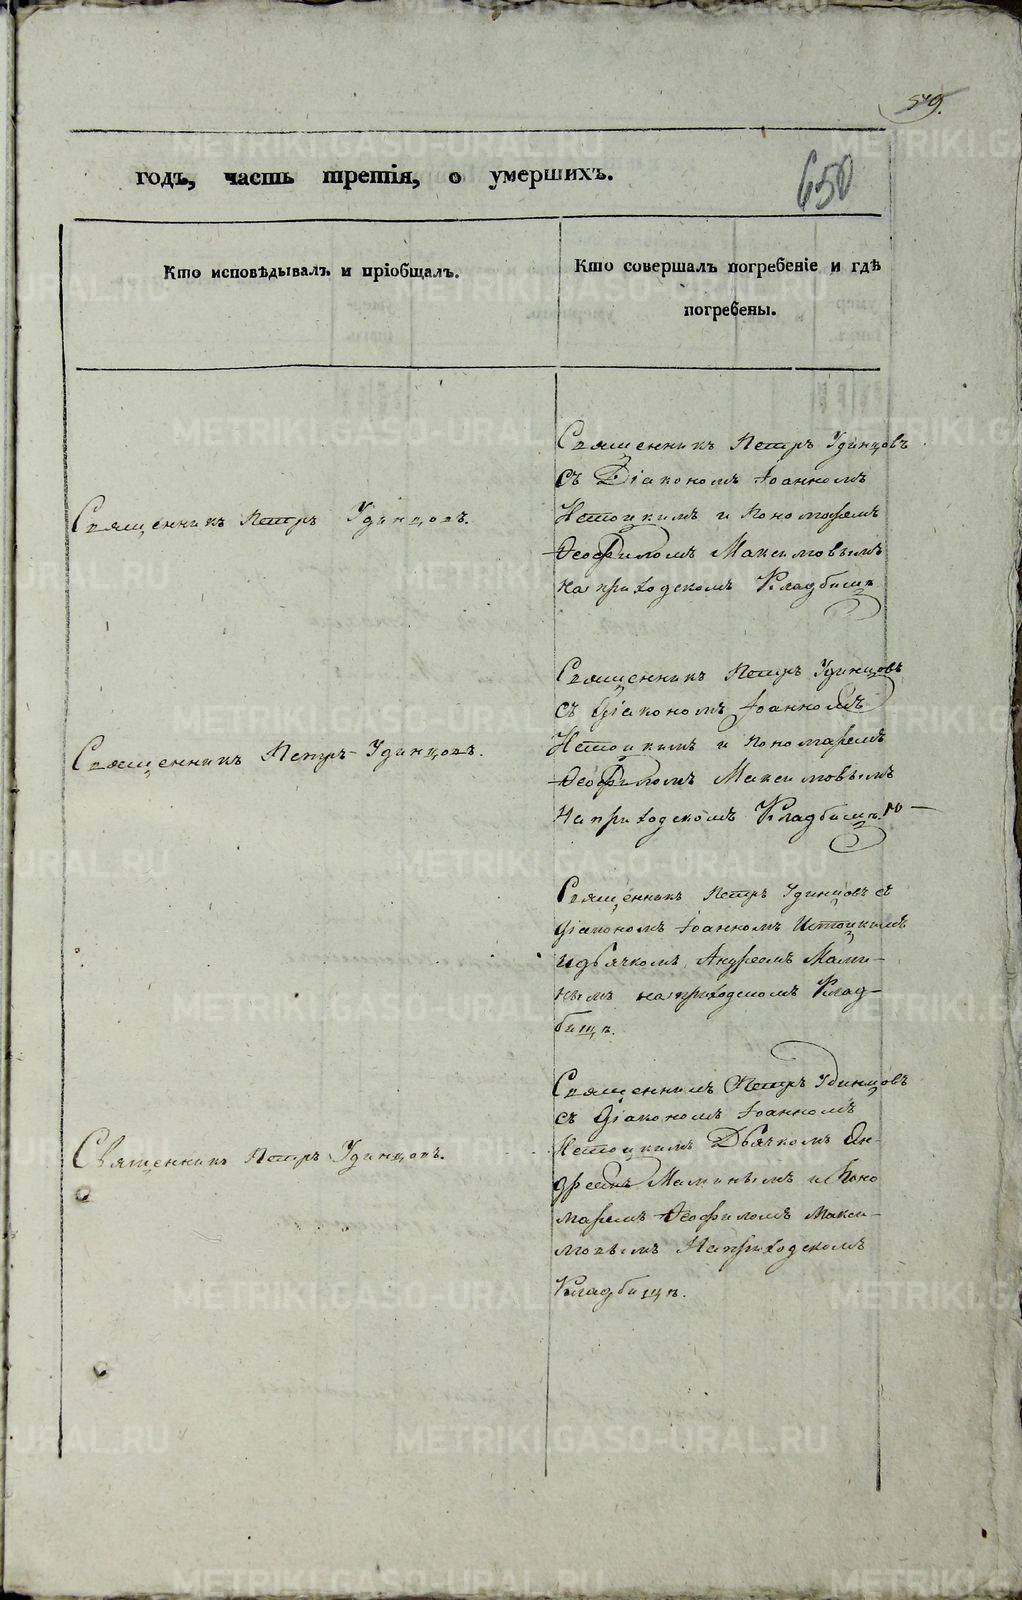 579.
650
годъ, часть третія, о умершихъ.
Кто исповѣдывалъ и пріобщалъ.
Кто совершалъ погребеніе и гдѣ
погребены.
Священникъ Петръ Удинцовъ.
Священникъ Петръ Удинцовъ
съ Діакономъ Іоанномъ
Истоцкимъ и Пономаремъ
Ѳеофиломъ Максимовымъ
на приходскомъ Кладбищѣ
Священникъ Петръ Удинцовъ.
Священникъ Петръ Удинцовъ
съ Діакономъ Іоанномъ
Истоцкимъ и Пономаремъ
Ѳеофиломъ Максимовымъ
На приходскомъ Кладбищѣ.
Священникъ Петръ Удинцовъ съ
Діакономъ Іоанномъ Истоцкимъ
и дьячкомъ Андреемъ Мами-
нымъ на приходскомъ Клад-
бищѣ.
Священникъ Петръ Удинцовъ.
Священникъ Петръ Удинцовъ
съ Діакономъ Іоанномъ
Истоцкимъ Дьячкомъ Ан-
дреемъ Маминымъ и Поно
маремъ Ѳеофиломъ Макси-
мовымъ На приходскомъ
Кладбищѣ.
METRIKI.GASO-URAL.RU